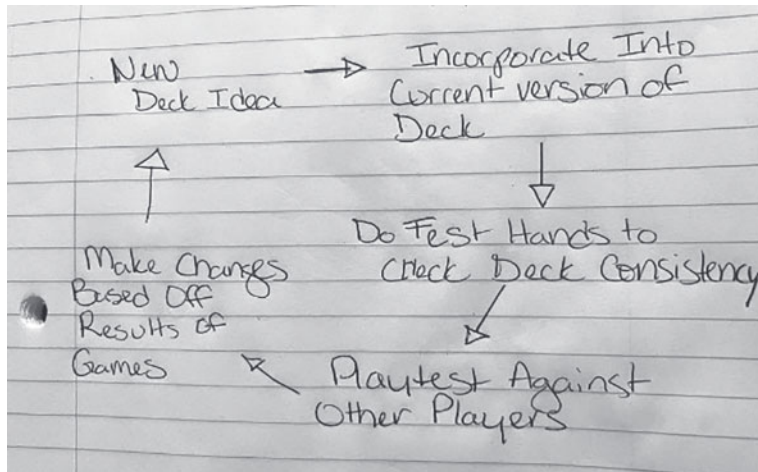 New
Deck Idea
Incorporate Into
Current version of
Deck
Do Test Hands to
Check Deck Consistency
Playtest Against
Other Players
Make Changes
Based Off
Results of
Games